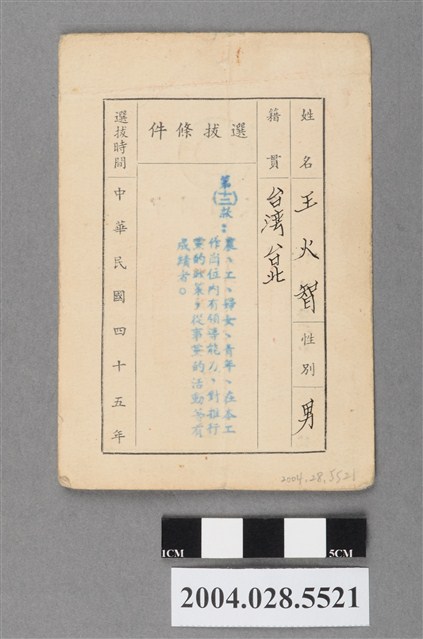 姓名 王火智 性別 男
籍貫 台灣台北
選拔條件
第(十二)款：
農、工、婦女、青年、在本工
作崗位內有領導能力、對推行
黨的政策，從事黨的活動著有
成績者。
選拔時間 中華民國四十五年
2004.28.5521
1CM 5CM
2004.028.5521